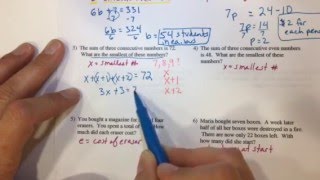 6b + 7 = 331
-7 -7
6b = 324
54 students
7p = 24-10
7p = 14
p = 2
$2 for
each pen
3) The sum of three consecutive numbers is 72.
What are the smallest of these numbers?
x = smallest # 7, 8, 9
x + (x+1) + (x+2) = 72
x
x+1
x+2
3x + 3 =
4) The sum of three consecutive even numbers
is 48. What are the smallest of these numbers?
5) You bought a magazine for
erasers. You spent a total of
much did each eraser cost?
e = cost of eraser
6) Maria bought seven boxes. A week later
half of all her boxes were destroyed in a fire.
There are now only 22 boxes left. With how
many did she start?
at start